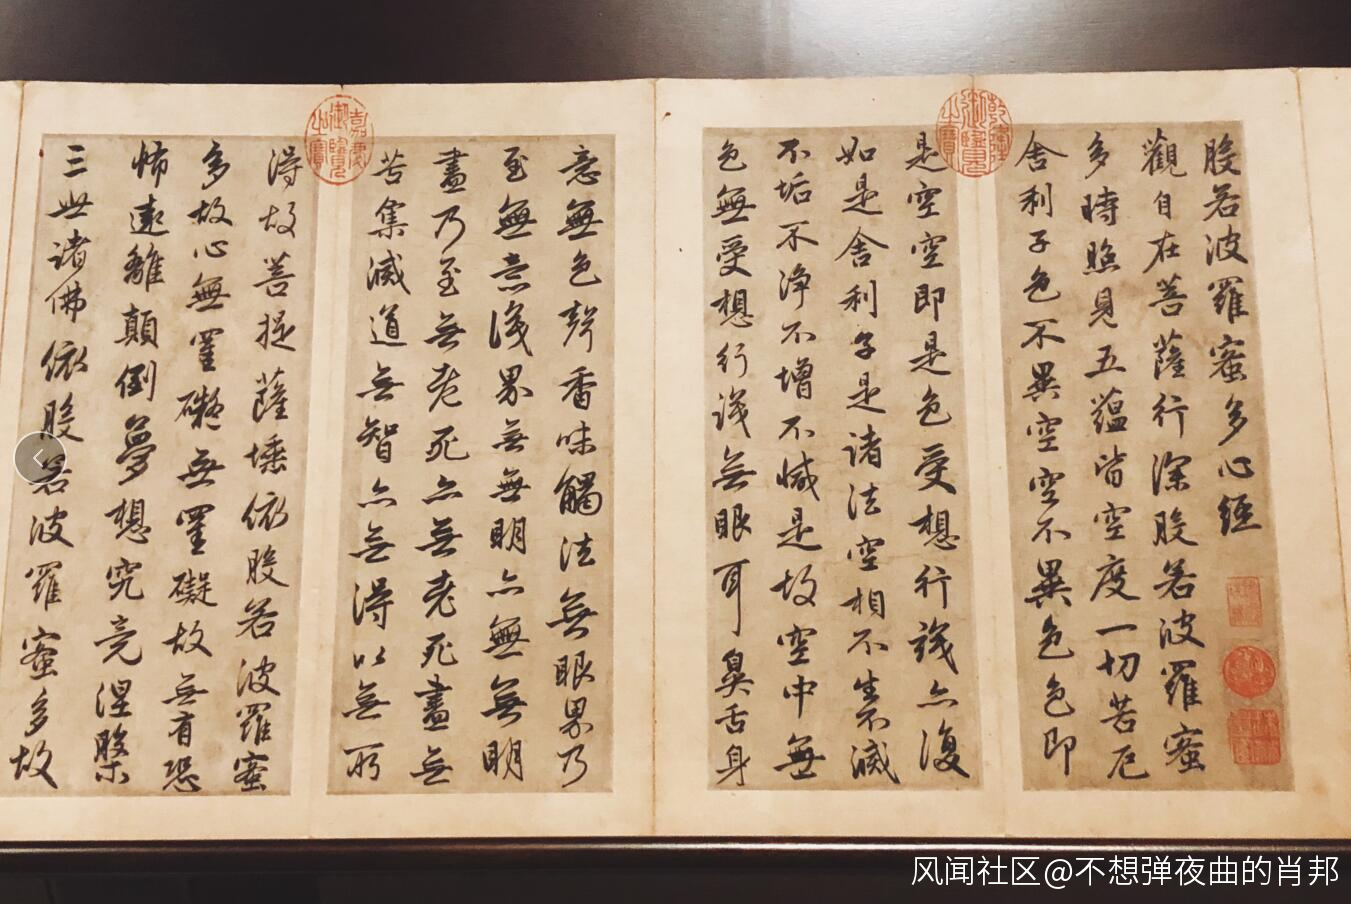 般若波羅蜜多心經
觀自在菩薩行深般若波羅蜜
多時照見五蘊皆空度一切苦厄
舍利子色不異空空不異色色即
是空空即是色受想行識亦復
如是舍利子是諸法空相不生不滅
不垢不淨不增不減是故空中無
色無受想行識無眼耳鼻舌身
意無色聲香味觸法無眼界乃
至無意識界無無明亦無無明
盡乃至無老死亦無老死盡無
苦集滅道無智亦無得以無所
得故菩提薩埵依般若波羅蜜
多故心無罣礙無罣礙故無有恐
怖遠離顛倒夢想究竟涅槃
三世諸佛依般若波羅蜜多故
乾隆御覽之寶
嘉慶御覽之寶
风闻社区@不想弹夜曲的肖邦